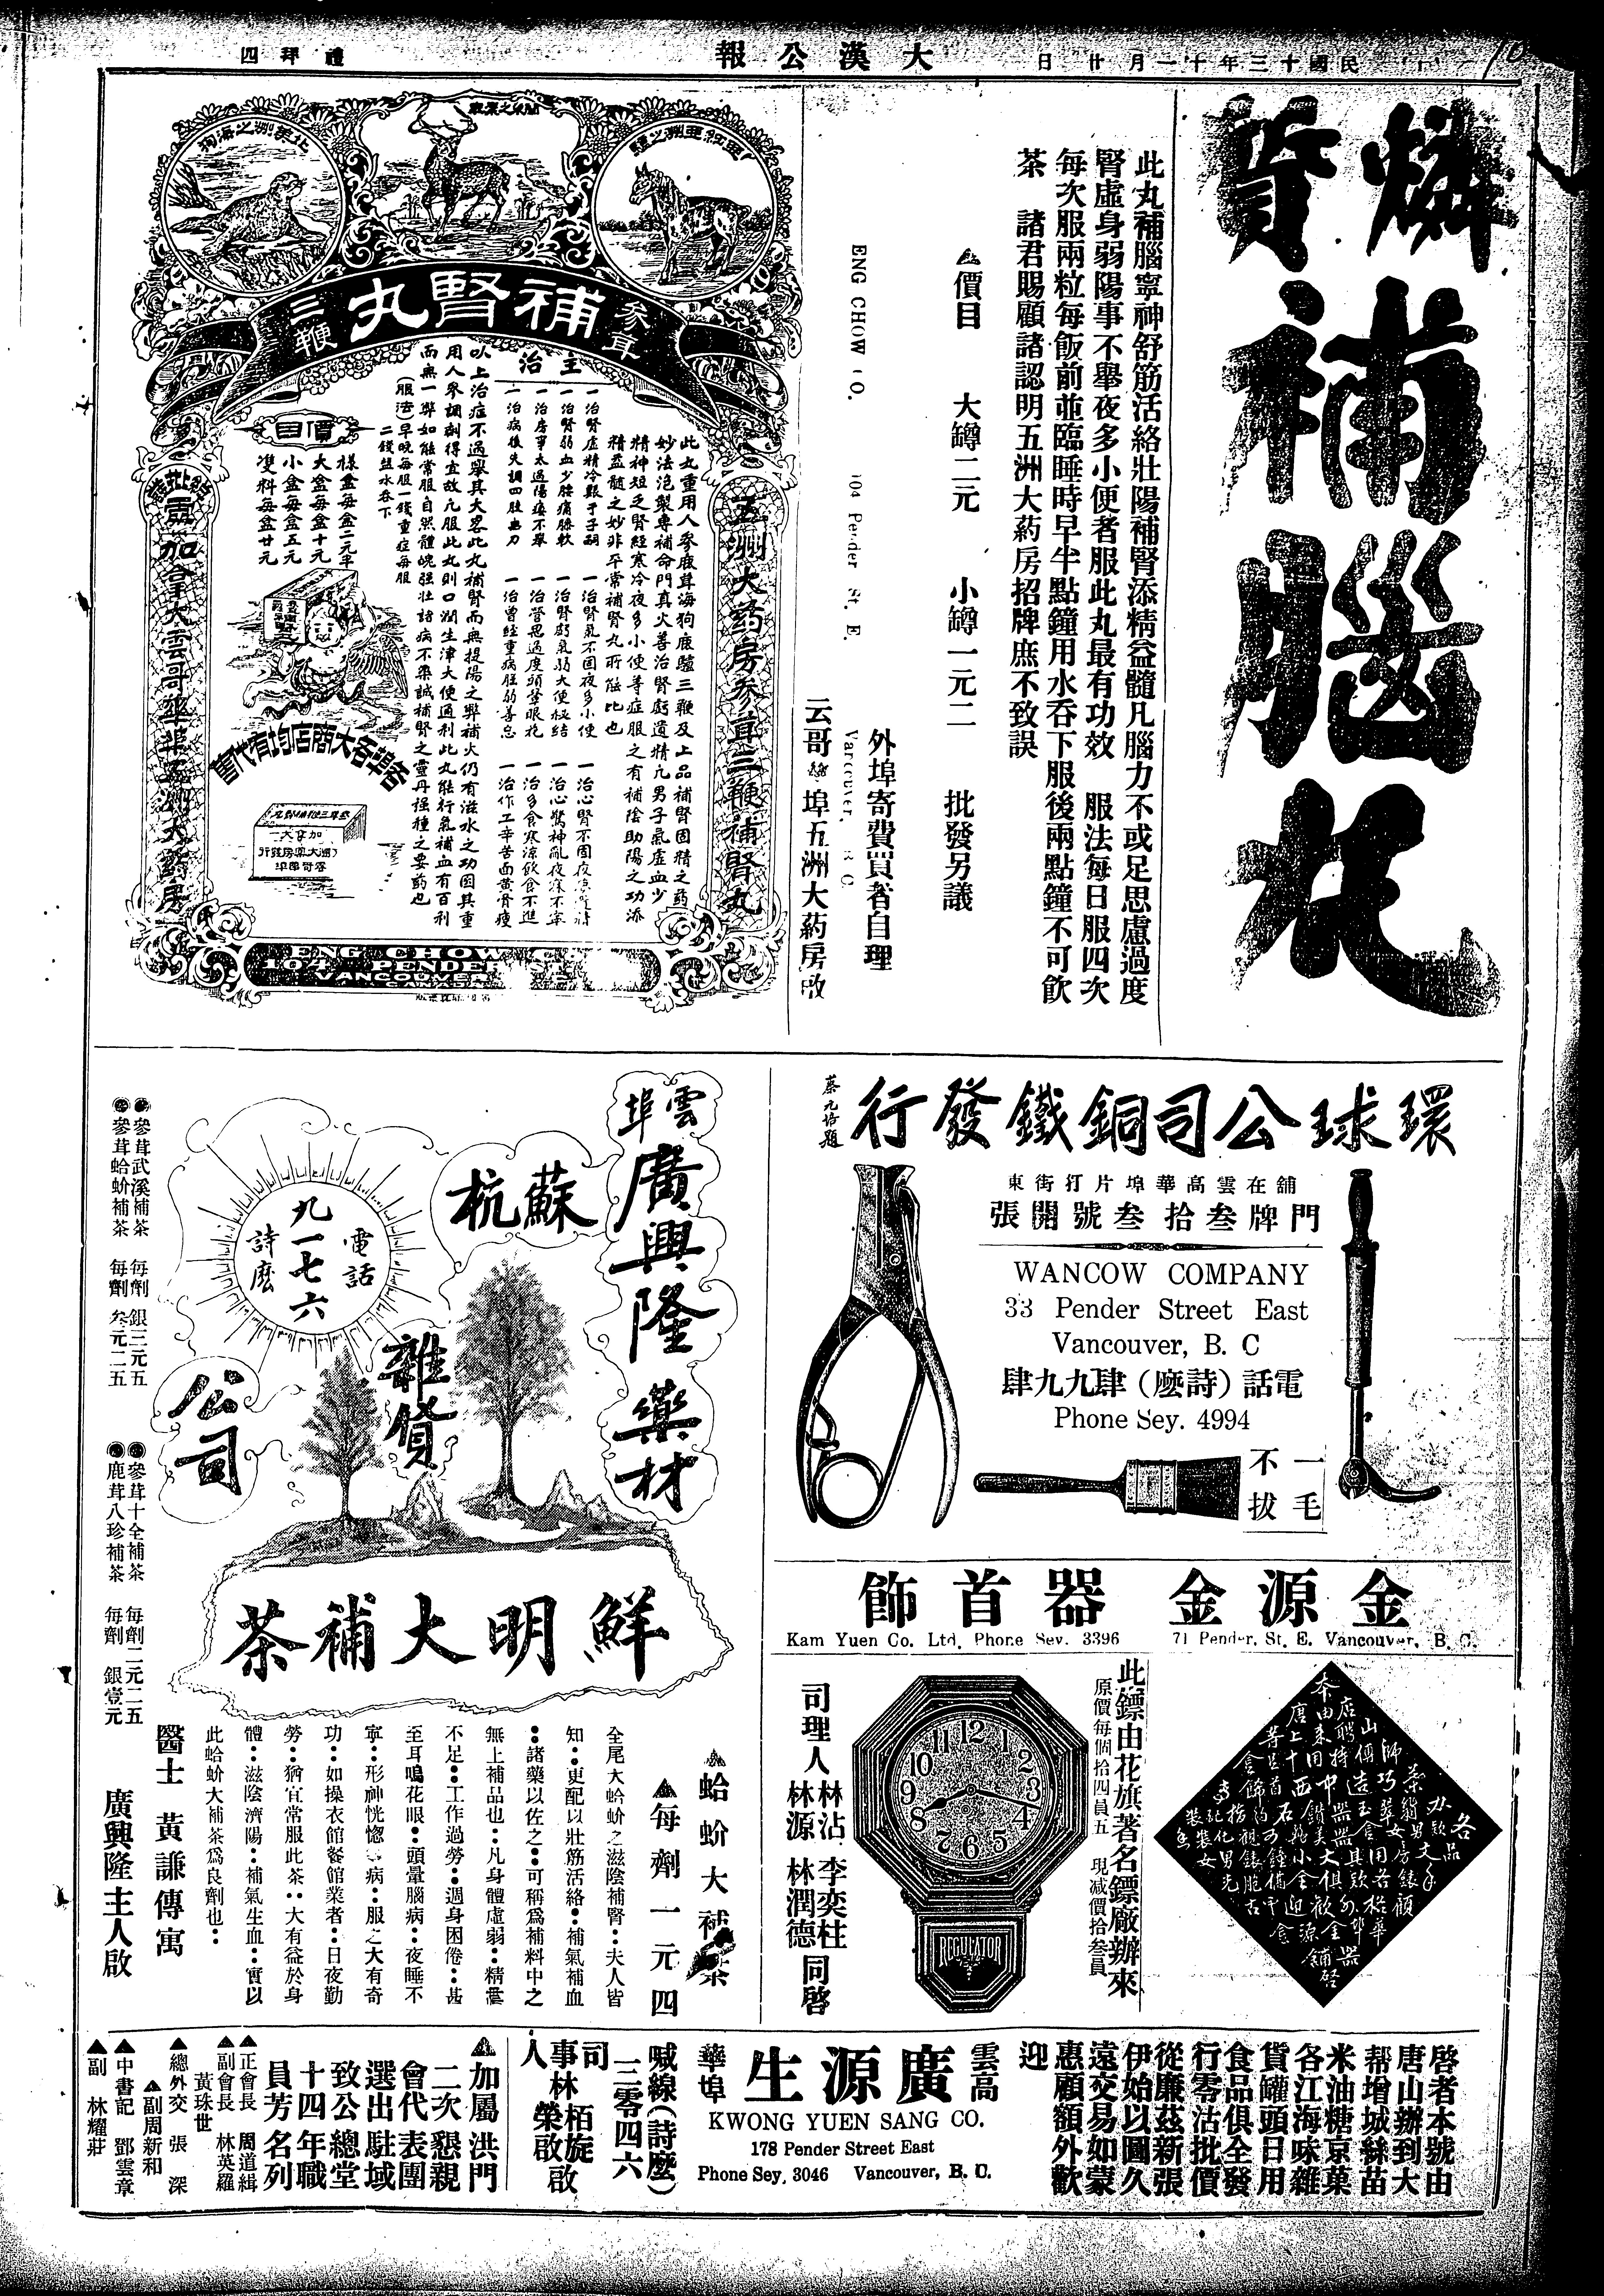 民國十三年十一月廿日
大漢公報
禮拜四
燐質補腦丸
此丸補腦寧神舒筋活絡壯陽補腎添精益髓凡腦力不或足思慮過度
腎虛身弱陽事不舉夜多小便者服此丸最有功效 服法每日服四次
每次服兩粒每飯前並臨睡時早半點鐘用水吞下服後兩點鐘不可飲
茶 諸君賜顧諸認明五洲大葯房招牌庶不致誤
▲價目 大罇二元 小罇一元二 批發另議
外埠寄費買者自理
ENG CHOW CO. 104 Pender St. E. Vancouver, B C
云哥華埠五洲大葯房啟
北美洲之海狗
亞細亞洲之驢
參茸
補腎丸
三鞭
五洲大葯房參茸三鞭補腎丸
此丸重用人參鹿茸海狗鹿驢三鞭及上品補腎固精之葯
妙法泡製專補命門真火善治腎虧遺精凡男子氣虛血少
精神短乏腎經寒冷夜多小便等症服之有補陰助陽之功添
精益髓之妙非平常補腎丸所能比也
主治
一治腎虛精冷艱于子嗣 一治腎氣不固夜多小便
一治腎弱血少腰痛膝軟 一治腎虧氣弱大便秘結 一治心驚神亂夜寐不寧
一治房事太過陽痿不舉 一治營思過度頭暈眼花 一治多食寒涼飲食不進
一治病後失調四肢無力 一治曾經重病胜弱善忘 一治作工辛苦面黄骨瘦
以上治症不過舉其大畧此丸補腎而無提陽之弊補火仍有滋水之功因其重
用人參調制得宜故凡服此丸則口潤生津大便通利此丸能行氣補血有百利
而無一弊如能常服自然體魄强壯諸病不染誠補腎之靈丹强種之要葯也
(服法)早晚每服一錢重症每服
二錢鹽水吞下
價目
樣盒每盒二元半
大盒每盒十元
小盒每盒五元
雙料每盒廿元
各埠各大商店均有代售
加拿大雲哥華埠五洲大葯房
ENG CHOW CO
104 PENDER
VANCOUVER
環球公司銅鐵發行
蔡元培題
舖在雲高華埠片打街東
門牌叁拾叁號開張
WANCOW COMPANY
33 Pender Street East
Vancouver, B. C
電話(詩麽)肆九九肆
Phone Sey. 4994
一毛
不拔
雲埠
廣興隆藥材
蘇杭
雜貨
公司
電話
九一七六
詩麽
鮮明大補茶
●參茸武溪補茶 每劑 銀三元五
●參茸蛤蚧補茶 每劑 叁元二五
●參茸十全補茶 每劑二元二五
●鹿茸八珍補茶 每劑 銀壹元
▲蛤蚧大補茶
▲每劑一元四
全尾大蛤蚧之滋陰補腎··夫人皆
知··更配以壯筋活絡··補氣補血
··諸藥以佐之··可稱爲補料中之
無上補品也··凡身體虛弱··精靈
不足··工作過勞··週身困倦··甚
至耳鳴花眼··頭暈腦病··夜睡不
寧··形神恍惚等病··服之大有奇
功··如操衣館餐館業者··日夜勤
勞··猶宜常服此茶··大有益於身
體··滋陰濟陽··補氣生血··實以
此蛤蚧大補茶爲良劑也··
醫士 黃謙傳寓
廣興隆主人啟
金源金器首飾
Kam Yuen Co. Ltd. Phone Sey. 3396 71 Pender. St. E. Vancouver, B. C.
此鏢由花旗著名鏢廠辦來
原價每個拾四員五 現减價拾叁員
12 1 2 3 4 5 6 7 8 9 10 11
REGULATOR
司理人 林沾 李奕柱 同啓
林源 林潤德
啓者本號由
唐山辦到大
帮增城絲苗
米油糖京菓
各江海味雜
貨罐頭日用
食品俱全發
行零沽批價
從廉茲新張
伊始以圖久
遠交易如蒙
惠顧額外歡
迎
雲高華埠
廣源生
KWONG YUEN SANG CO.
178 Pender Street East
Phone Sey. 3046 Vancouver, B. C.
喊線(詩麽)
三零四六
司事人 林栢旋 啟
林榮啟
▲加屬洪門
二次懇親
會代表團
選出駐域
致公總堂
十四年職
員芳名列
▲正會長 周道緝
▲副會長 林英羅
黃珠世
▲總外交 張深
▲副周新和
▲中書記 鄧雲章
▲副 林耀莊